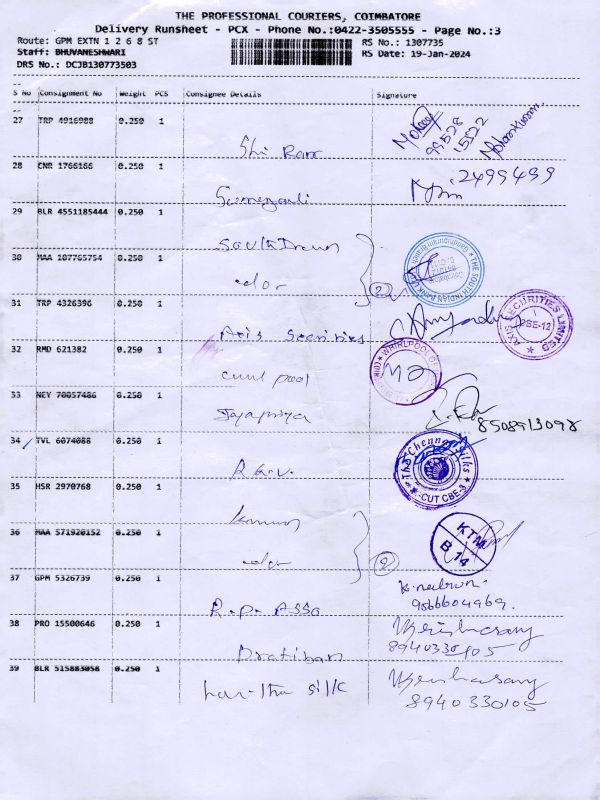 THE PROFESSIONAL COURIERS, COIMBATORE
Delivery Runsheet - PCX - Phone No.:0422-3505555 - Page No.:3
Route: GPM EXTN 1 2 6 8 ST
RS No.: 1307735
Staff: BHUVANESHWARI
RS Date: 19-Jan-2024
DRS No.: DCJB130773503
S No Consignment No Weight PCS Consignee Details Signature
27 TRP 4916988 0.250 1
99528
15522
Shi Ram
28 CNR 1766166 0.250 1
2499499
29 BLR 4551185444 0.250 1
30 MAA 107765754 0.250 1
THE SOUTH INDIAN BANK LTD
2
31 TRP 4326396 0.250 1
AXIS SECURITIES LIMITED
CBE-12
Axis Securities
32 RMD 621382 0.250 1
WHIRLPOOL OF
pool
33 NEY 70057486 0.250 1
Jayapriya
8508913098
34 TVL 6074088 0.250 1
The Chennai Silks
-CUT CBE-3
R.K.V.
35 HSR 2970768 0.250 1
36 MAA 571920152 0.250 1
KTM
B 14
2
37 GPM 5326739 0.250 1
9566604969.
R.P. ASSO
38 PRO 15500646 0.250 1
8940330105
Pratiban
39 BLR 515883058 0.250 1
silk
8940330105